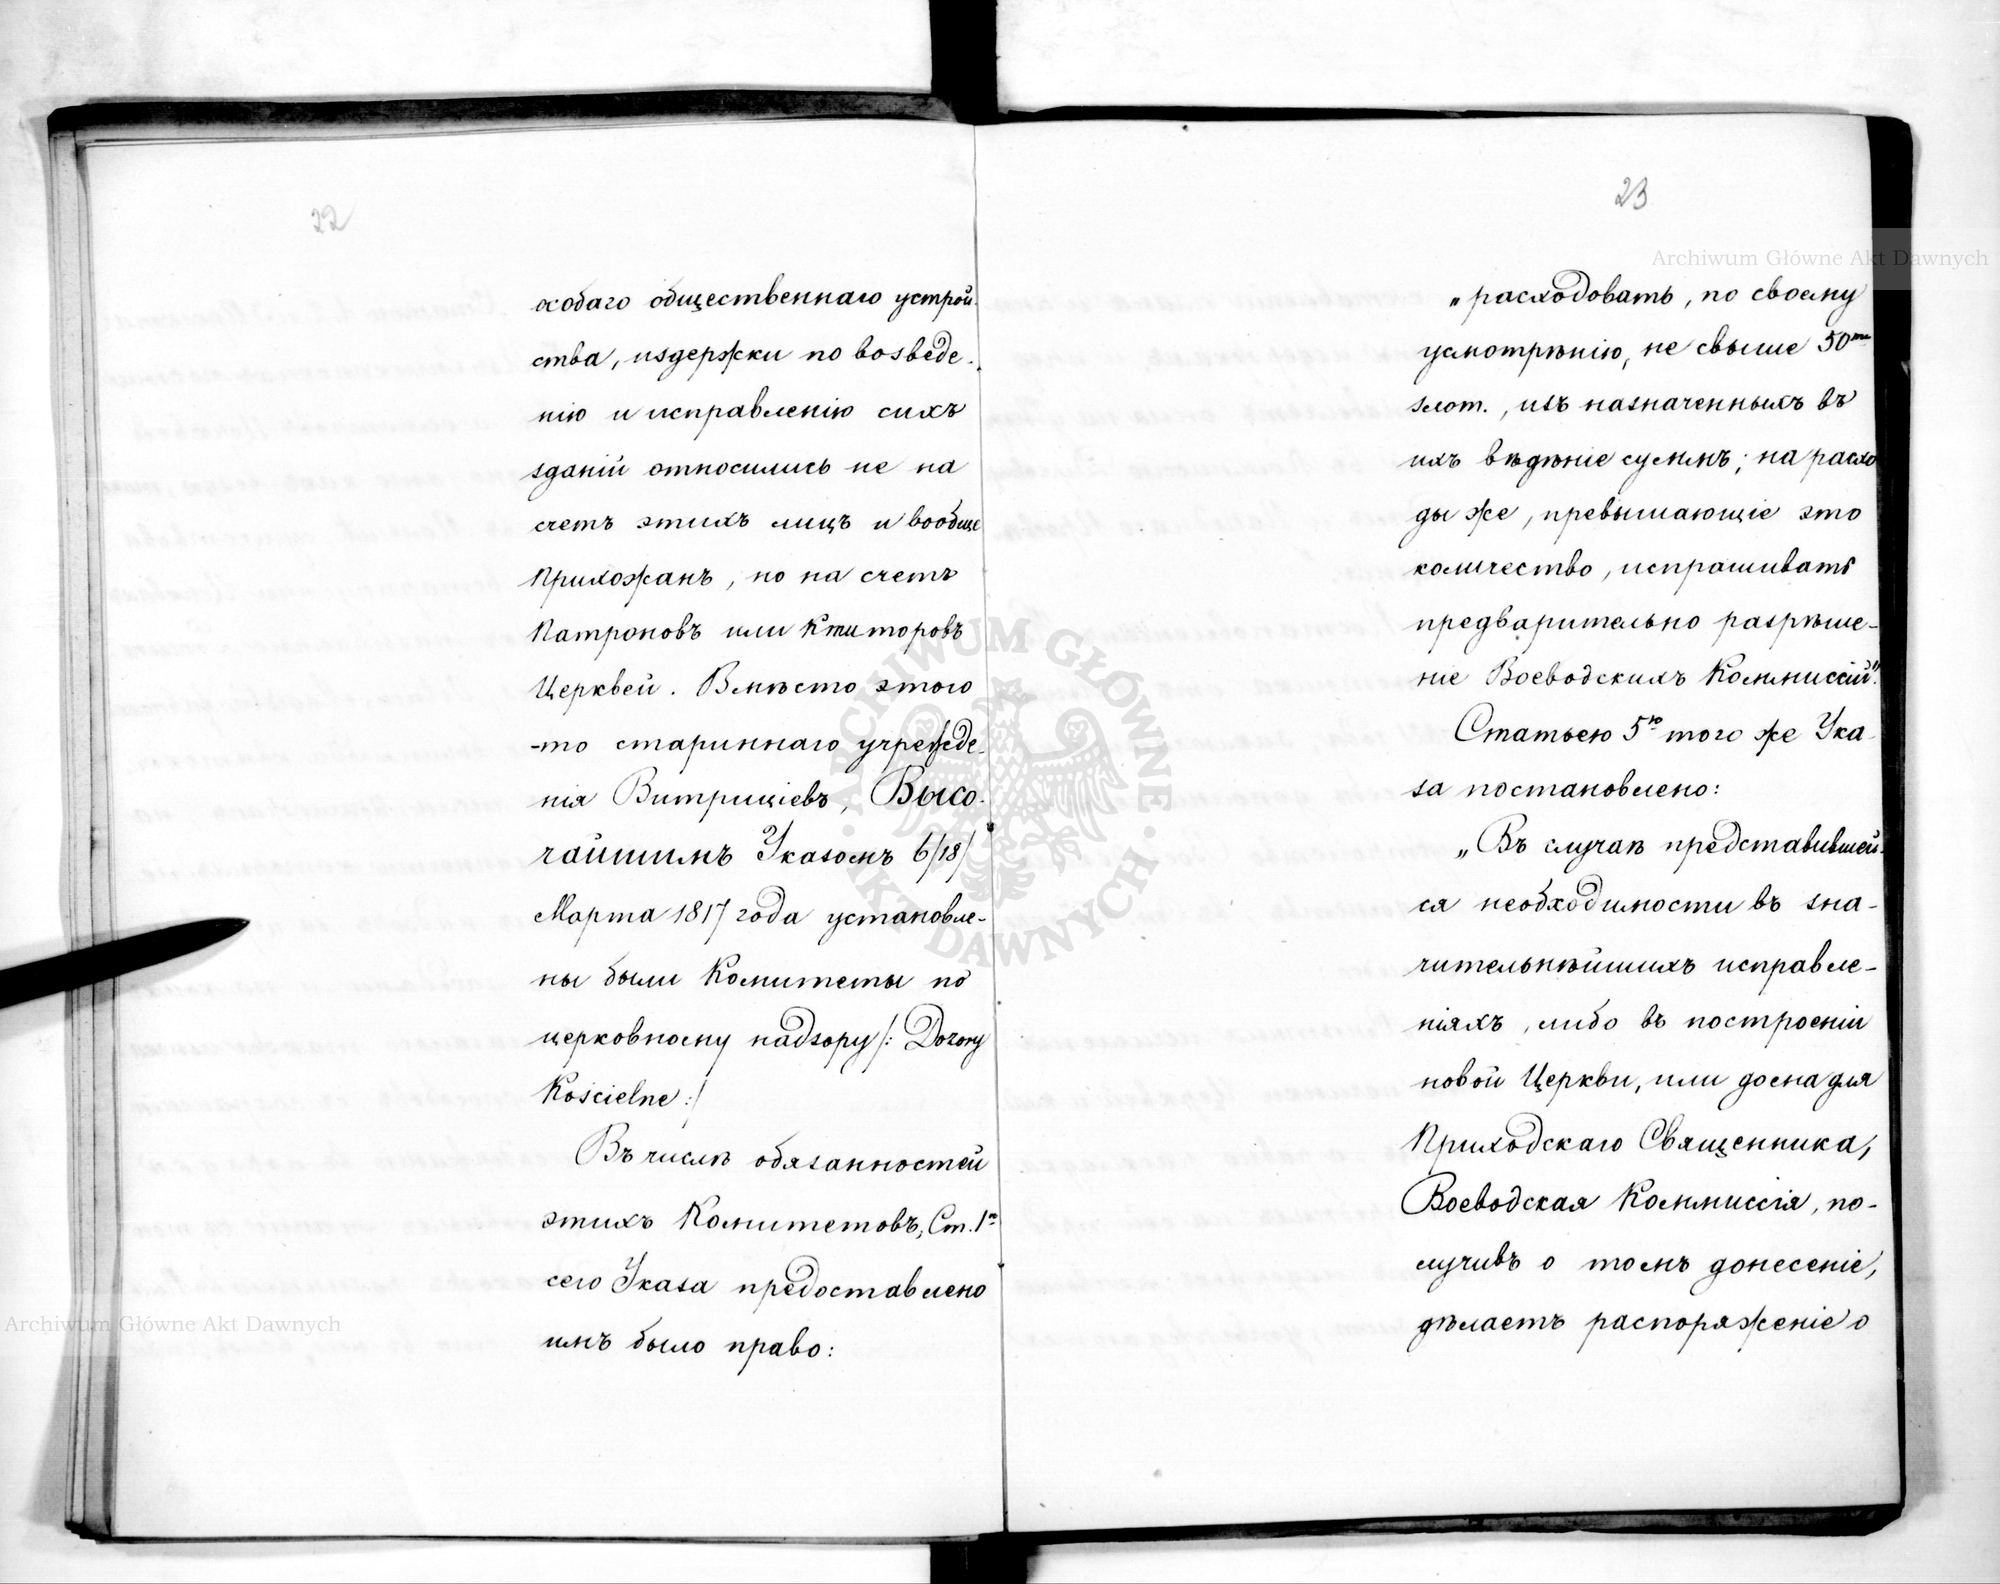 22
особаго общественнаго устрой-
ства, издержки по возведе-
нію и исправленію сихъ
зданій относились не на
счетъ этихъ лицъ и вообще
Прихожанъ, но на счетъ
Патроновъ или Ктиторовъ
Церквей. Вмѣсто этого
-то стариннаго учрежде-
нія Витрициевъ, Высо-
чайшимъ Указомъ 6/18/
Марта 1817 года установле-
ны были Комитеты по
церковному надзору /: Dozory
Kościelne :/
Въ числѣ обязанностей
этихъ Комитетовъ, Ст. 1ю
сего Указа предоставлено
имъ было право:
23
„расходовать, по своему
усмотрѣнію, не свыше 50ти
злот., изъ назначенныхъ въ
ихъ вѣдѣніе суммъ; на расхо
ды же, превышающіе это
количество, испрашивать
предварительно разрѣше-
ніе Воеводскихъ Коммиссій".
Статьею 5ю того же Ука-
за постановлено:
„Въ случаѣ представившей-
ся необходимости въ зна-
чительнѣйшихъ исправле-
ніяхъ, либо въ построеніи
новой Церкви, или дома для
Приходскаго Священника,
Воеводская Коммиссія, по-
лучивъ о томъ донесеніе,
дѣлаетъ распоряженіе о
Archiwum Główne Akt Dawnych
Archiwum Główne Akt Dawnych
ARCHIWUM GŁÓWNE AKT DAWNYCH